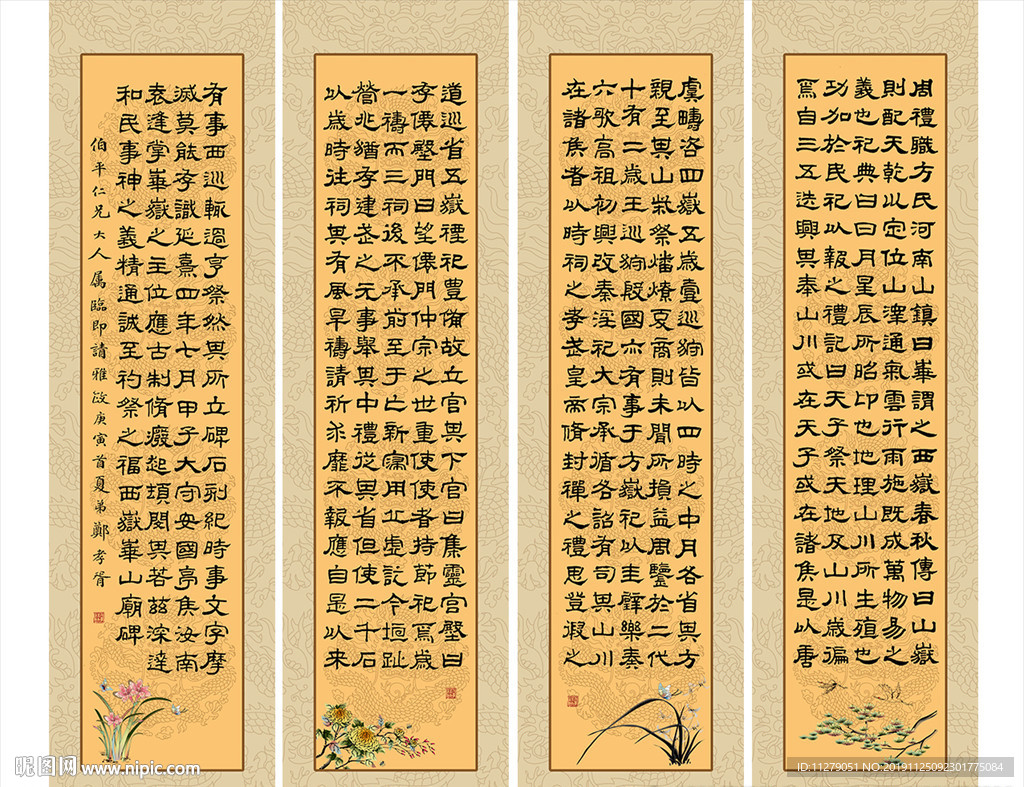 周禮職方氏河南山鎮曰華謂之西嶽春秋傳曰山嶽
則配天乾坤定位山澤通氣雲行雨施既成萬物易之
義也祀典曰日月星辰所昭卬也地理山川所生殖也
功加於民祀以報之禮記曰天子祭天地及山川歲徧
焉自三五迭興其奉山川或在天子或在諸侯是以唐
虞疇咨四嶽五歲壹巡狩皆以四時之中月各省其方
親至其山柴祭燔燎夏商則未聞所損益周鑒於二代
十有二歲王巡狩殷國亦有事于方嶽祀以圭璧樂奏
六歌高祖初興改秦淫祀大宗承循各詔有司其山川
在諸侯者以時祠之孝武皇帝脩封禪之禮思登遐之
道巡省五嶽禋祀豐備故立宮其下宮曰集靈宮壂曰
存僊壂門曰望僊門仲宗之世重使使者持節祀焉歲
一禱而三祠後不承前至于亡新寖用丘虛訖今垣趾
營兆猶存建武之元事舉其中禮從其省但使二千石
以歲時往祠其有風旱禱請祈求靡不報應自是以來
有事西巡輒過亨祭然其所立碑石刻紀時事文字摩
滅莫能存識延熹四年七月甲子大守安國亭侯汝南
袁逢掌華嶽之主位應古制脩廢起頓閔其若茲深達
和民事神之義精通誠至礿祭之福西嶽華山廟碑
伯平仁兄大人屬臨即請雅政庚寅首夏弟鄭孝胥
昵图网 www.nipic.com
ID:11279051 NO:20191125092301775084